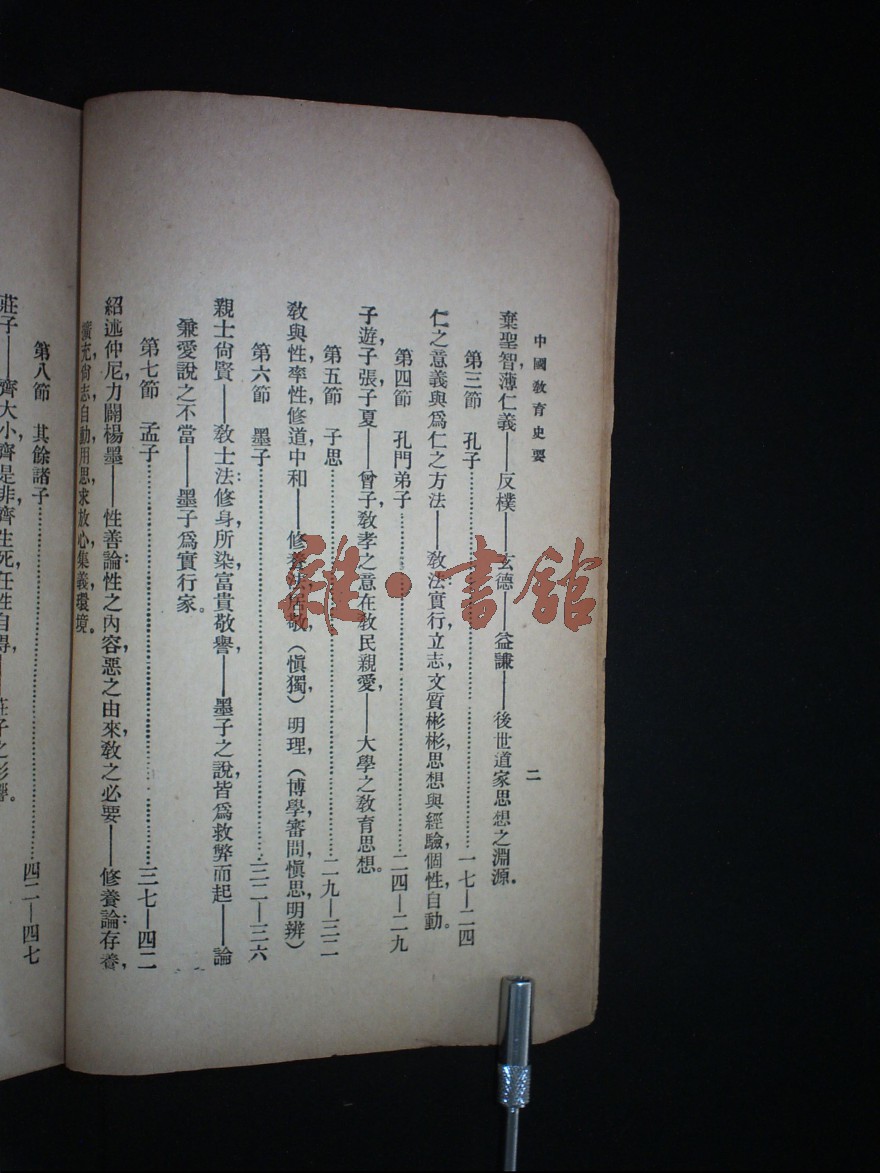 中國教育史要
二
棄聖智，薄仁義——反樸——玄德——益謙——後世道家思想之淵源。
第三節　孔子……一七—二四
仁之意義與爲仁之方法——教法：實行，立志，文質彬彬，思想與經驗，個性，自動。
第四節　孔門弟子……二四—二九
子遊，子張，子夏——曾子教孝之意在教民親愛——大學之教育思想。
第五節　子思……二九—三二
教與性，率性，修道，中和——修養法：居敬，（愼獨）明理，（博學審問愼思明辨）
第六節　墨子……三二—三六
親士尙賢——教士法：修身，所染，富貴敬譽——墨子之說皆爲救弊而起——論
兼愛說之不當——墨子爲實行家。
第七節　孟子……三七—四二
紹述仲尼，力闢楊墨——性善論：性之內容，惡之由來，教之必要——修養論：存養，
擴充，尙志，自動，用思，求放心，集義，環境。
第八節　其餘諸子……四二—四七
莊子——齊大小，齊是非，齊生死，任性自得，——莊子之影響。
雜·書館